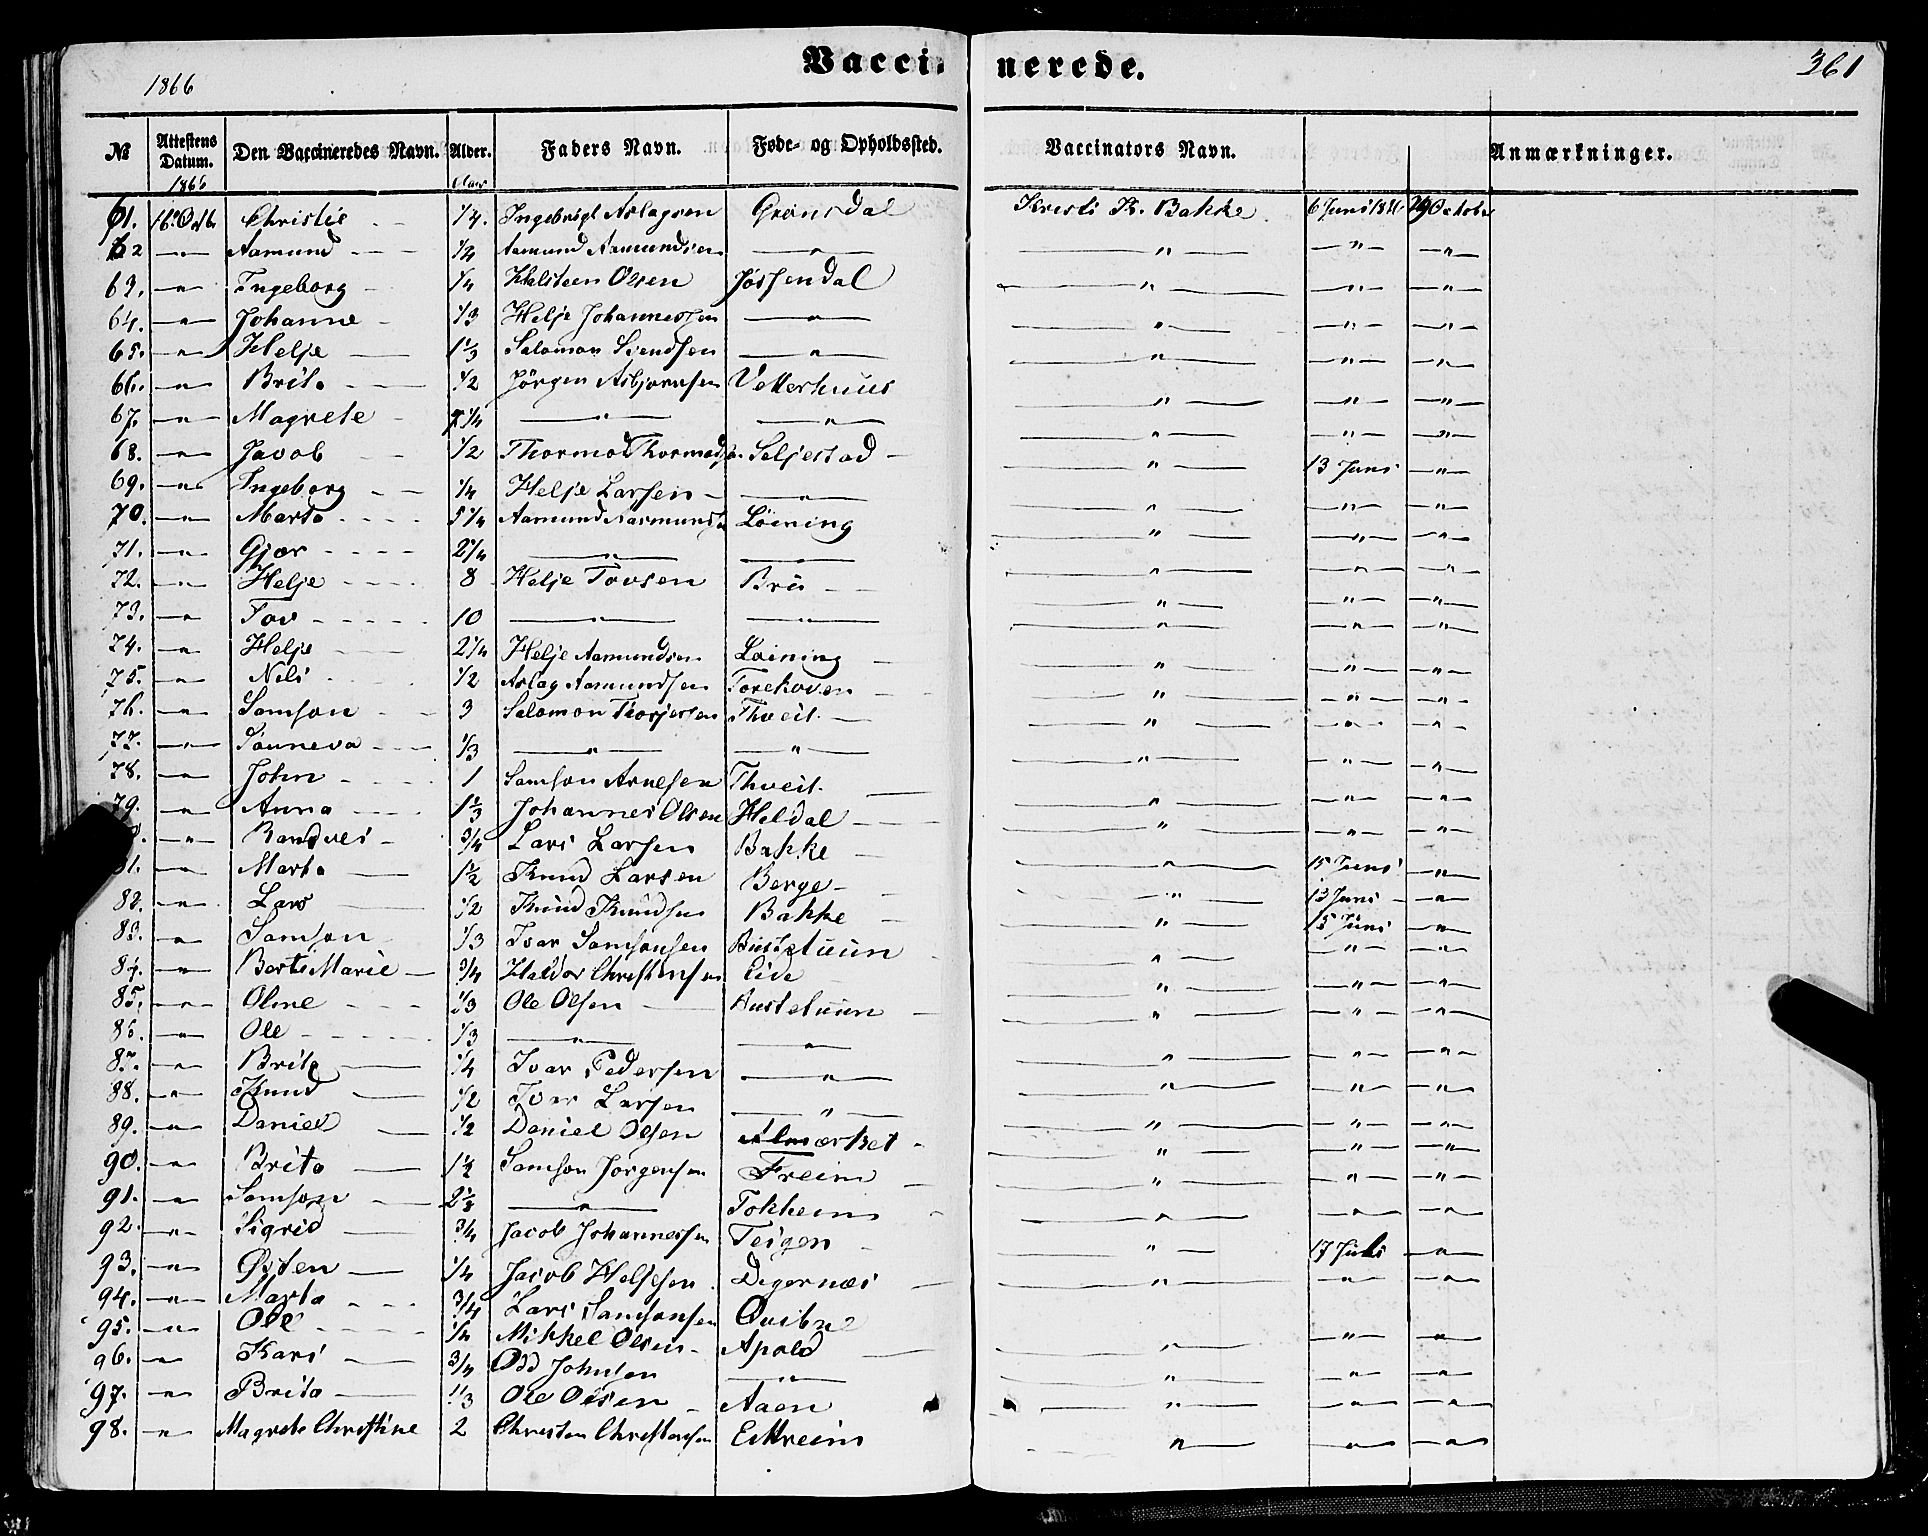 1866 Vaccinerede. 361
№ Attestens Datum. Den Vaccineredes Navn. Alder. Faders Navn. Føde- og Opholdssted. Vaccinators Navn. Anmærkninger.
1866 Aar
61. 16. Octb Christie 1/4. Ingebrigt Aslagsen Grønsdal Kristi K. Bakke 6 Juni 1866 29 October
62 " Aamund 1/4 Aamund Aamundsen " " " "
63. " Ingeborg 1/4 Halsteen Olsen Jøssendal " " "
64. " Johanne 1/3 Helje Johannessen " " " "
65. " Helje 1 1/3 Salomon Svendsen " " " "
66. " Brita 1/2 Jörgen Asbjørnsen Vetterhuus " " "
67. " Magrete 7 1/4 " " " " "
68. " Jacob 1/2 Thormod Thormods. Seljestad " 13 Juni "
69. " Ingeborg 1/4 Helje Larsen " " " "
70. " Marta 5 1/4 Aamund Aasmunds Löining " " "
71. " Gjoer 2 1/4 " " " " "
72. " Helje 8 Helje Tovsen Bru " " "
73. " Tov 10 " " " " "
74. " Helje 2 1/4 Helje Aamundsen Löining " " "
75. " Nels 1/2 Aslag Aamundsen Torehoven " " "
76. " Samson 3 Salomon Thorjersen Thveit " " "
77. " Sønneva 1/3 " " " " "
78. " John 1 Samson Arnesen Thveit " " "
79. " Anna 1 1/3 Johannes Olsen Heldal " " "
" Randvei 3/4 Lars Larsen Bakke " " "
81. " Marta 1 1/2 Knud Larsen Berge " 15 Juni "
82. " Lars 1/2 Knud Knudsen Bakke " 13 Juni "
83. " Samson 1/3 Ivar Samsonsen Bustetuun " 15 Juni "
84. " Berte Marie 3/4 Haldor Christensen Eide " " "
85. " Oline 1/3 Ole Olsen Bustetuun " " "
86. " Ole 1/3 " " " " "
87. " Brita 1/4 Ivar Pedersen " " " "
88. " Knud 1/2 Ivar Larsen " " " "
89. " Daniel 1/2 Daniel Olsen Almærket " " "
90. " Brita 1 1/2 Samson Jörgensen Freim " " "
91. " Samson 2 1/3 " Tokheim " " "
92. " Sigrid 3/4 Jacob Johannessen Teigen " " "
93. " Østen 1/4 Jacob Heljesen Digernæs " 17 Juli "
94. " Marta 3/4 Lars Samsonsen Qvitne " " "
95. " Ole 1/4 Mikkel Olsen Apold " " "
96. " Kari 3/4 Odd Johnson " " " "
97. " Brita 1/3 Ole Olsen Aaen " " "
98. " Magrete Christine 2 Christen Christensen Eitreim " " "